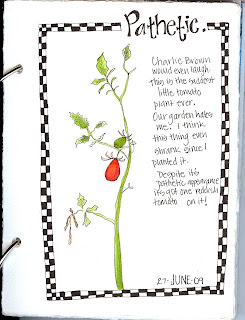 Pathetic.
Charlie Brown
would even laugh.
This is the saddest
little tomato
plant ever.
Our garden hates
me. I think
this thing even
shrank since I
planted it.
Despite its
pathetic appearance
it's got one reddish
tomato on it!
27-JUNE-09